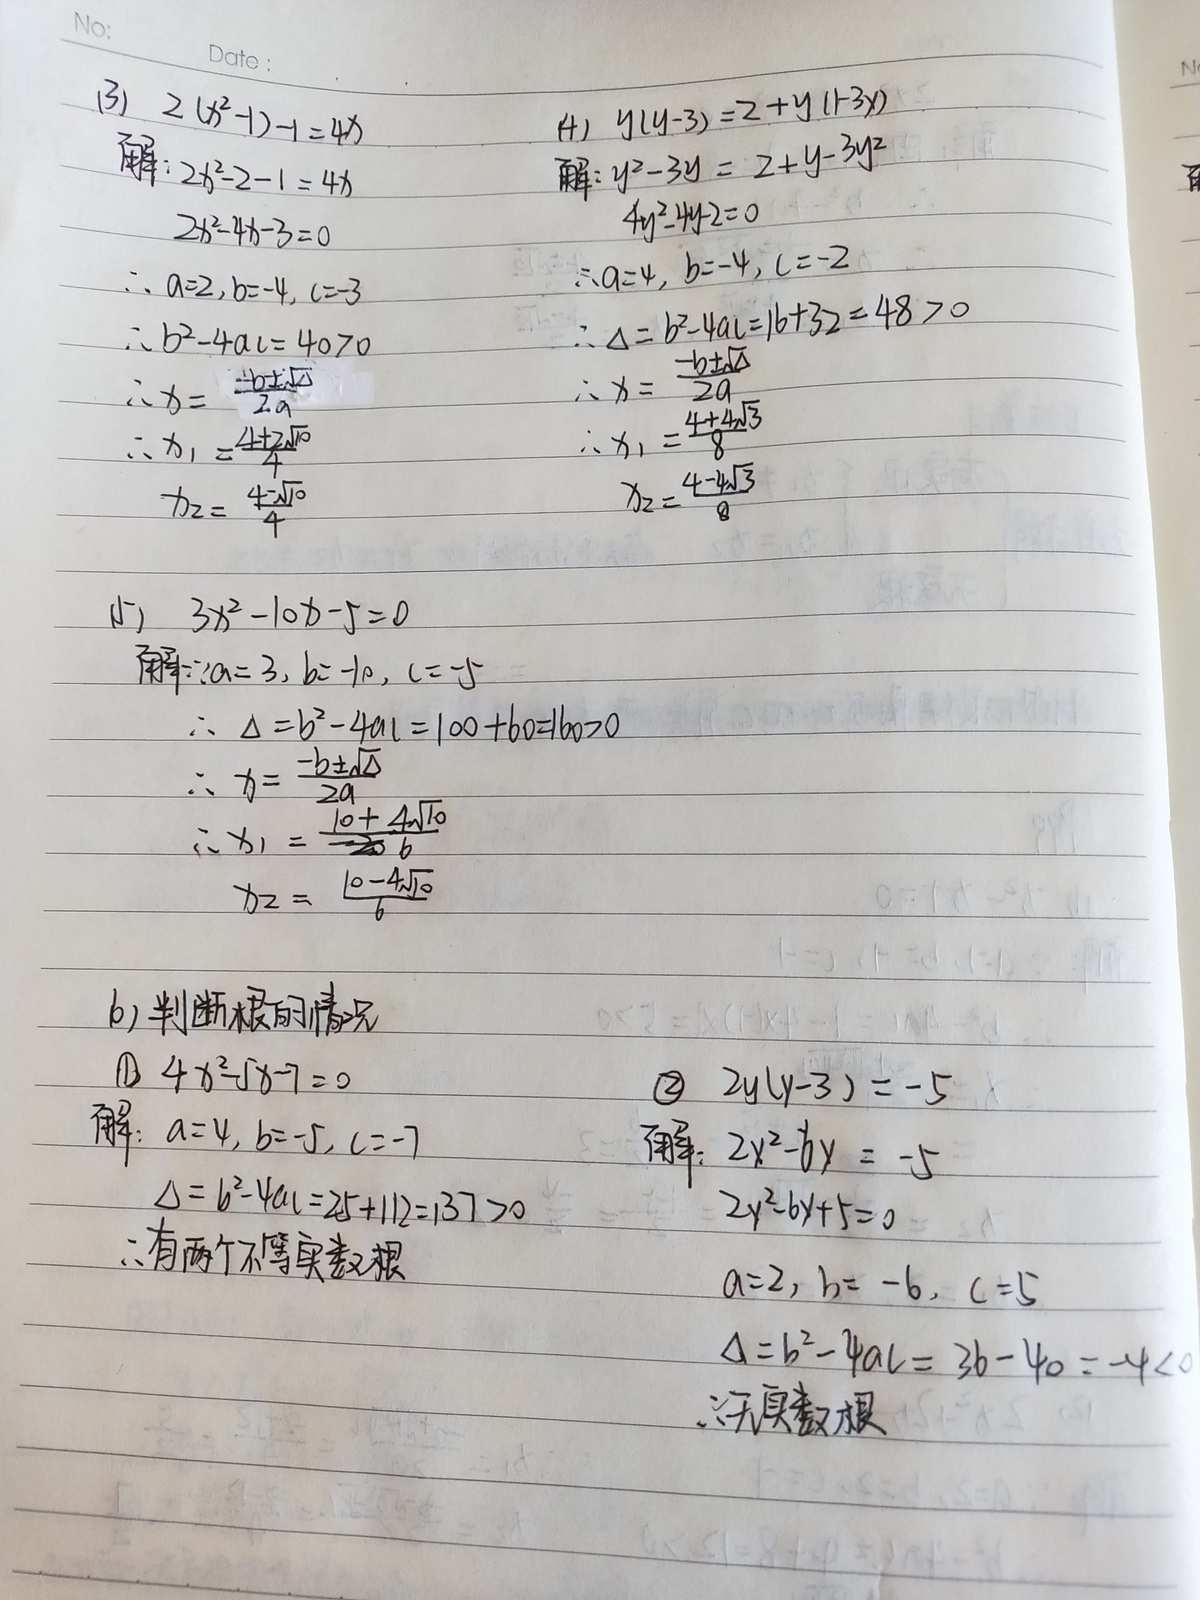 No:
Date:
(3) 2(x²-1)-1=4x
解: 2x²-2-1=4x
2x²-4x-3=0
∴a=2, b=-4, c=-3
∴b²-4ac=40>0
∴x=(-b±√Δ)/2a
∴x₁=(4+2√10)/4
x₂=(4-√10)/4
(4) y(y-3)=2+y(1-3y)
解: y²-3y=2+y-3y²
4y²-4y-2=0
∴a=4, b=-4, c=-2
∴Δ=b²-4ac=16+32=48>0
∴x=(-b±√Δ)/2a
∴x₁=(4+4√3)/8
x₂=(4-4√3)/8
(5) 3x²-10x-5=0
解∵a=3, b=-10, c=-5
∴Δ=b²-4ac=100+60=160>0
∴x=(-b±√Δ)/2a
∴x₁=(10+4√10)/6
x₂=(10-4√10)/6
6) 判断根的情况
① 4x²-5x-7=0
解: a=4, b=-5, c=-7
Δ=b²-4ac=25+112=137>0
∴有两个不等实数根
② 2y(y-3)=-5
解: 2y²-6y=-5
2y²-6y+5=0
a=2, b=-6, c=5
Δ=b²-4ac=36-40=-4<0
∴无实数根